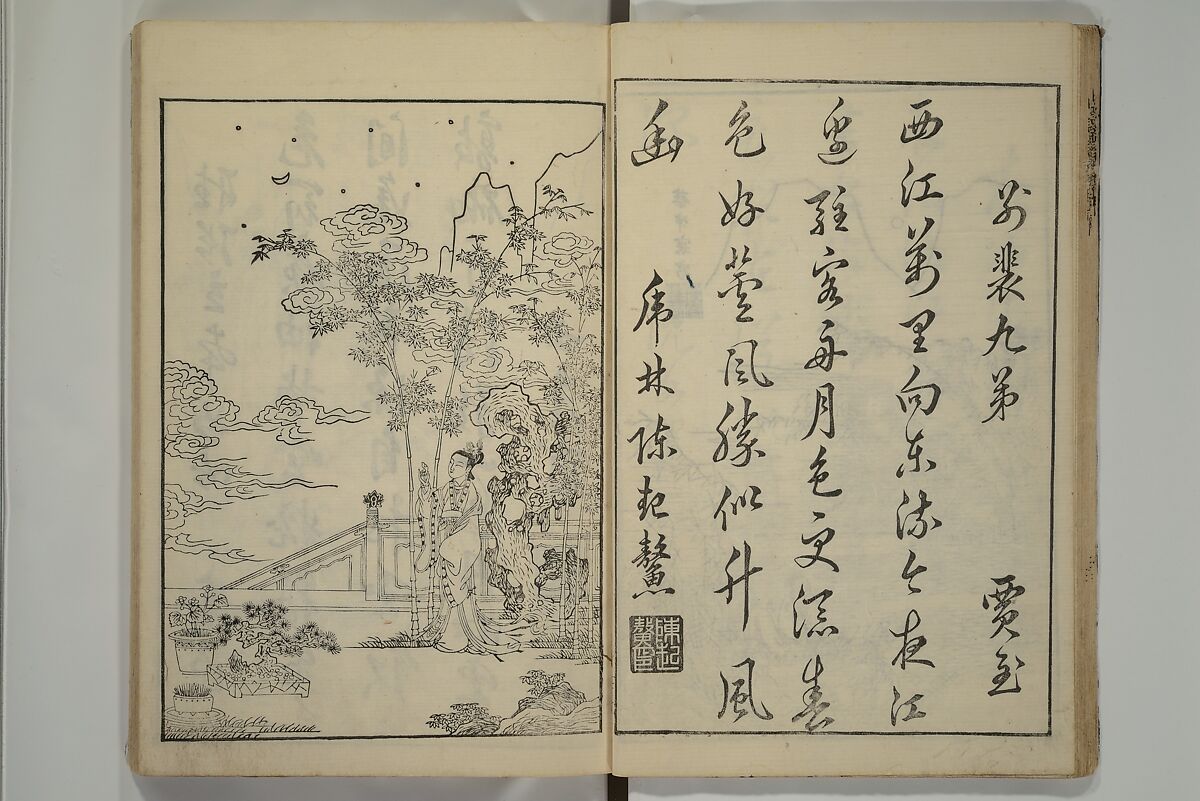 別裴九弟　賈至
西江萬里向東流今夜江
邊駐客舟月色更添春
色好蘆風勝似竹風
幽　虎林陳起鰲
陳起鰲印